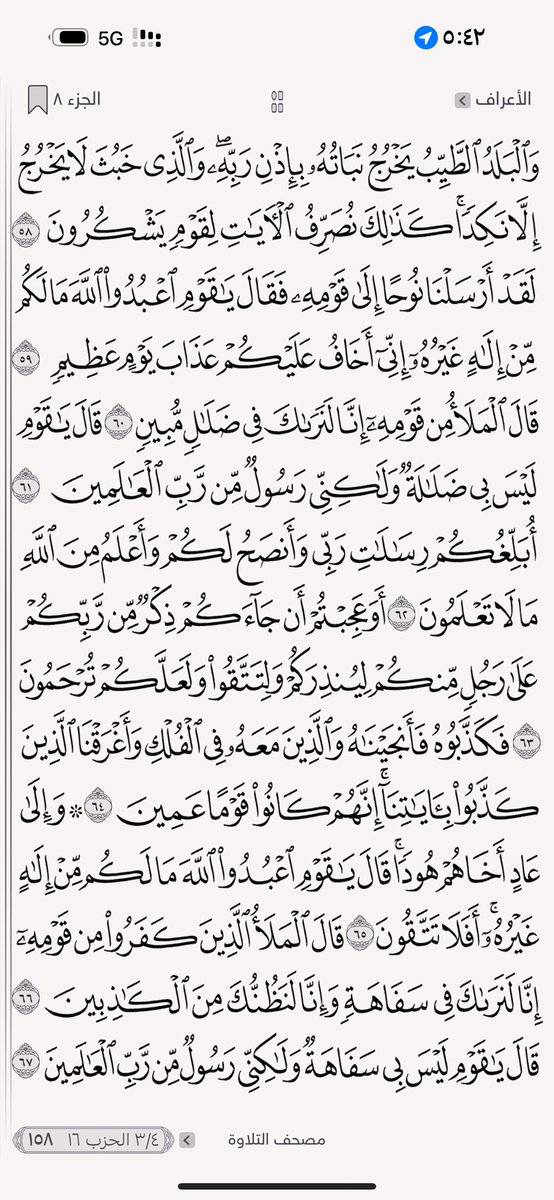 5G ٥:٤٢
الأعراف الجزء ٨
وَٱلْبَلَدُ ٱلطَّيِّبُ يَخْرُجُ نَبَاتُهُۥ بِإِذْنِ رَبِّهِۦۖ وَٱلَّذِى خَبُثَ لَا يَخْرُجُ
إِلَّا نَكِدًاۚ كَذَٰلِكَ نُصَرِّفُ ٱلْأٓيَٰتِ لِقَوْمٍ يَشْكُرُونَ ٥٨
لَقَدْ أَرْسَلْنَا نُوحًا إِلَىٰ قَوْمِهِۦ فَقَالَ يَٰقَوْمِ ٱعْبُدُوا۟ ٱللَّهَ مَا لَكُم
مِّنْ إِلَٰهٍ غَيْرُهُۥٓ إِنِّىٓ أَخَافُ عَلَيْكُمْ عَذَابَ يَوْمٍ عَظِيمٍ ٥٩
قَالَ ٱلْمَلَأُ مِن قَوْمِهِۦٓ إِنَّا لَنَرَىٰكَ فِى ضَلَٰلٍ مُّبِينٍ ٦٠ قَالَ يَٰقَوْمِ
لَيْسَ بِى ضَلَٰلَةٌ وَلَٰكِنِّى رَسُولٌ مِّن رَّبِّ ٱلْعَٰلَمِينَ ٦١
أُبَلِّغُكُمْ رِسَٰلَٰتِ رَبِّى وَأَنصَحُ لَكُمْ وَأَعْلَمُ مِنَ ٱللَّهِ
مَا لَا تَعْلَمُونَ ٦٢ أَوَعَجِبْتُمْ أَن جَآءَكُمْ ذِكْرٌ مِّن رَّبِّكُمْ
عَلَىٰ رَجُلٍ مِّنكُمْ لِيُنذِرَكُمْ وَلِتَتَّقُوا۟ وَلَعَلَّكُمْ تُرْحَمُونَ
٦٣ فَكَذَّبُوهُ فَأَنجَيْنَٰهُ وَٱلَّذِينَ مَعَهُۥ فِى ٱلْفُلْكِ وَأَغْرَقْنَا ٱلَّذِينَ
كَذَّبُوا۟ بِـَٔايَٰتِنَآۚ إِنَّهُمْ كَانُوا۟ قَوْمًا عَمِينَ ٦٤ ۞ وَإِلَىٰ
عَادٍ أَخَاهُمْ هُودًاۚ قَالَ يَٰقَوْمِ ٱعْبُدُوا۟ ٱللَّهَ مَا لَكُم مِّنْ إِلَٰهٍ
غَيْرُهُۥٓۚ أَفَلَا تَتَّقُونَ ٦٥ قَالَ ٱلْمَلَأُ ٱلَّذِينَ كَفَرُوا۟ مِن قَوْمِهِۦٓ
إِنَّا لَنَرَىٰكَ فِى سَفَاهَةٍ وَإِنَّا لَنَظُنُّكَ مِنَ ٱلْكَٰذِبِينَ ٦٦
قَالَ يَٰقَوْمِ لَيْسَ بِى سَفَاهَةٌ وَلَٰكِنِّى رَسُولٌ مِّن رَّبِّ ٱلْعَٰلَمِينَ ٦٧
مصحف التلاوة ٣/٤ الحزب ١٦ ١٥٨